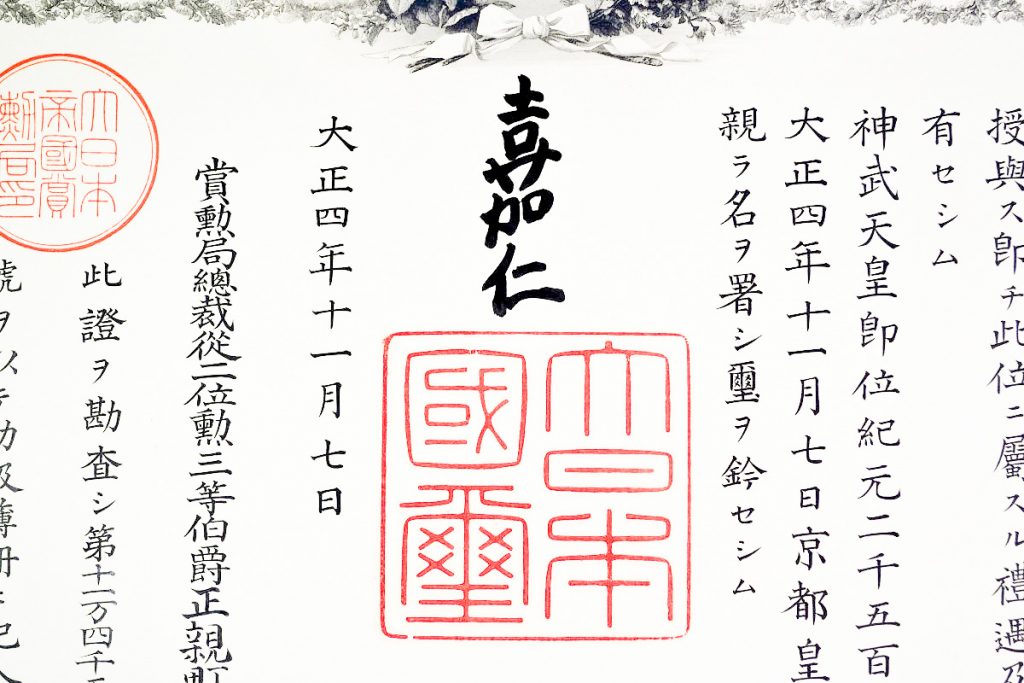 授與ス卽チ此位ニ屬スル禮遇及
有セシム
神武天皇卽位紀元二千五百
大正四年十一月七日京都皇
親ラ名ヲ署シ璽ヲ鈐セシム
嘉仁
大日本
國璽
大正四年十一月七日
賞勲局總裁從二位勲三等伯爵正親町
大日本
帝國賞
勲局印
此證ヲ勘査シ第十一万四千
號ヲ以テ勲級簿册ニ記入